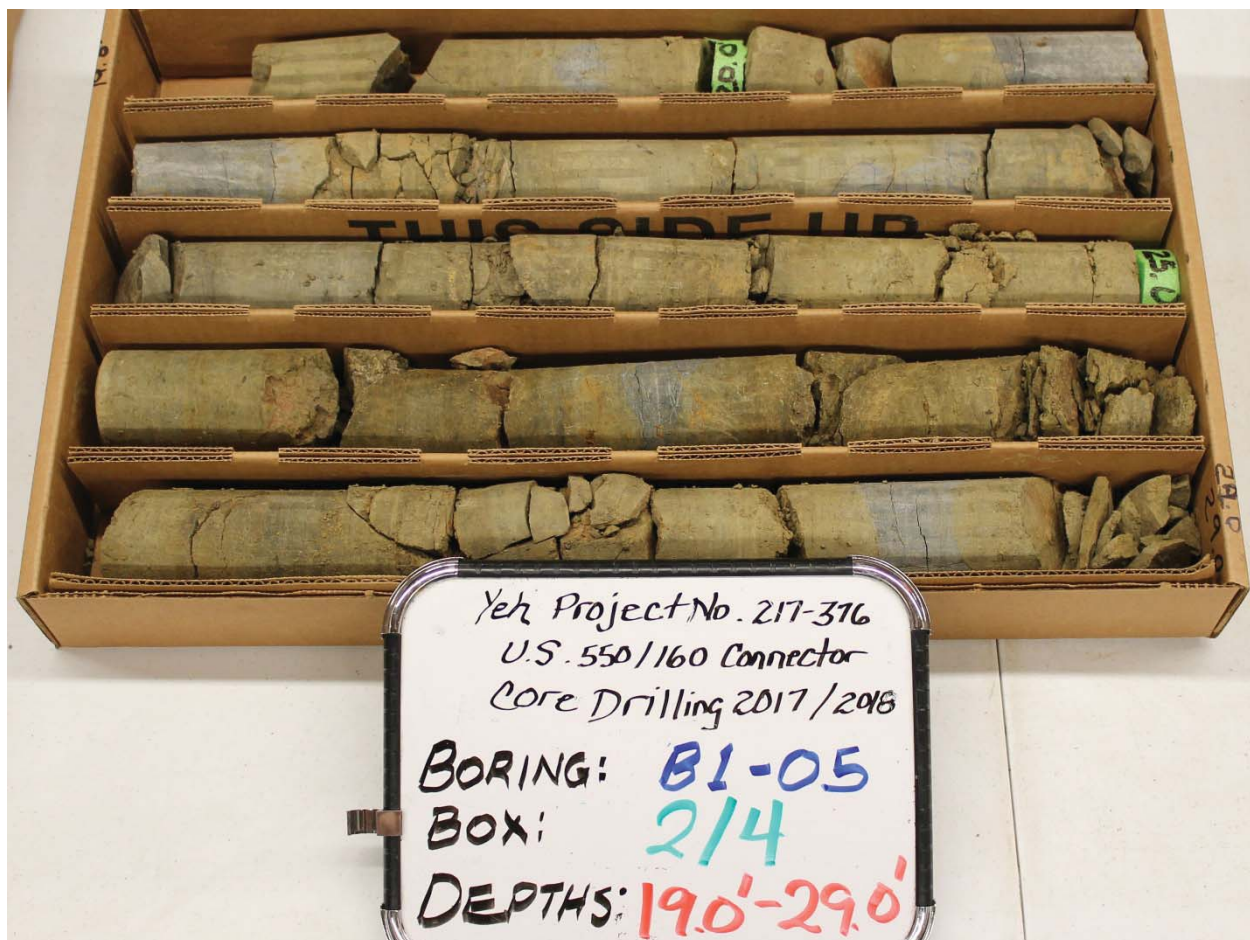 19.0
20.0
THIS SIDE UP
25.0
29.0
29.0
Yeh Project No. 217-376
U.S. 550/160 Connector
Core Drilling 2017/2018
BORING: B1-05
BOX: 2/4
DEPTHS: 19.0'-29.0'